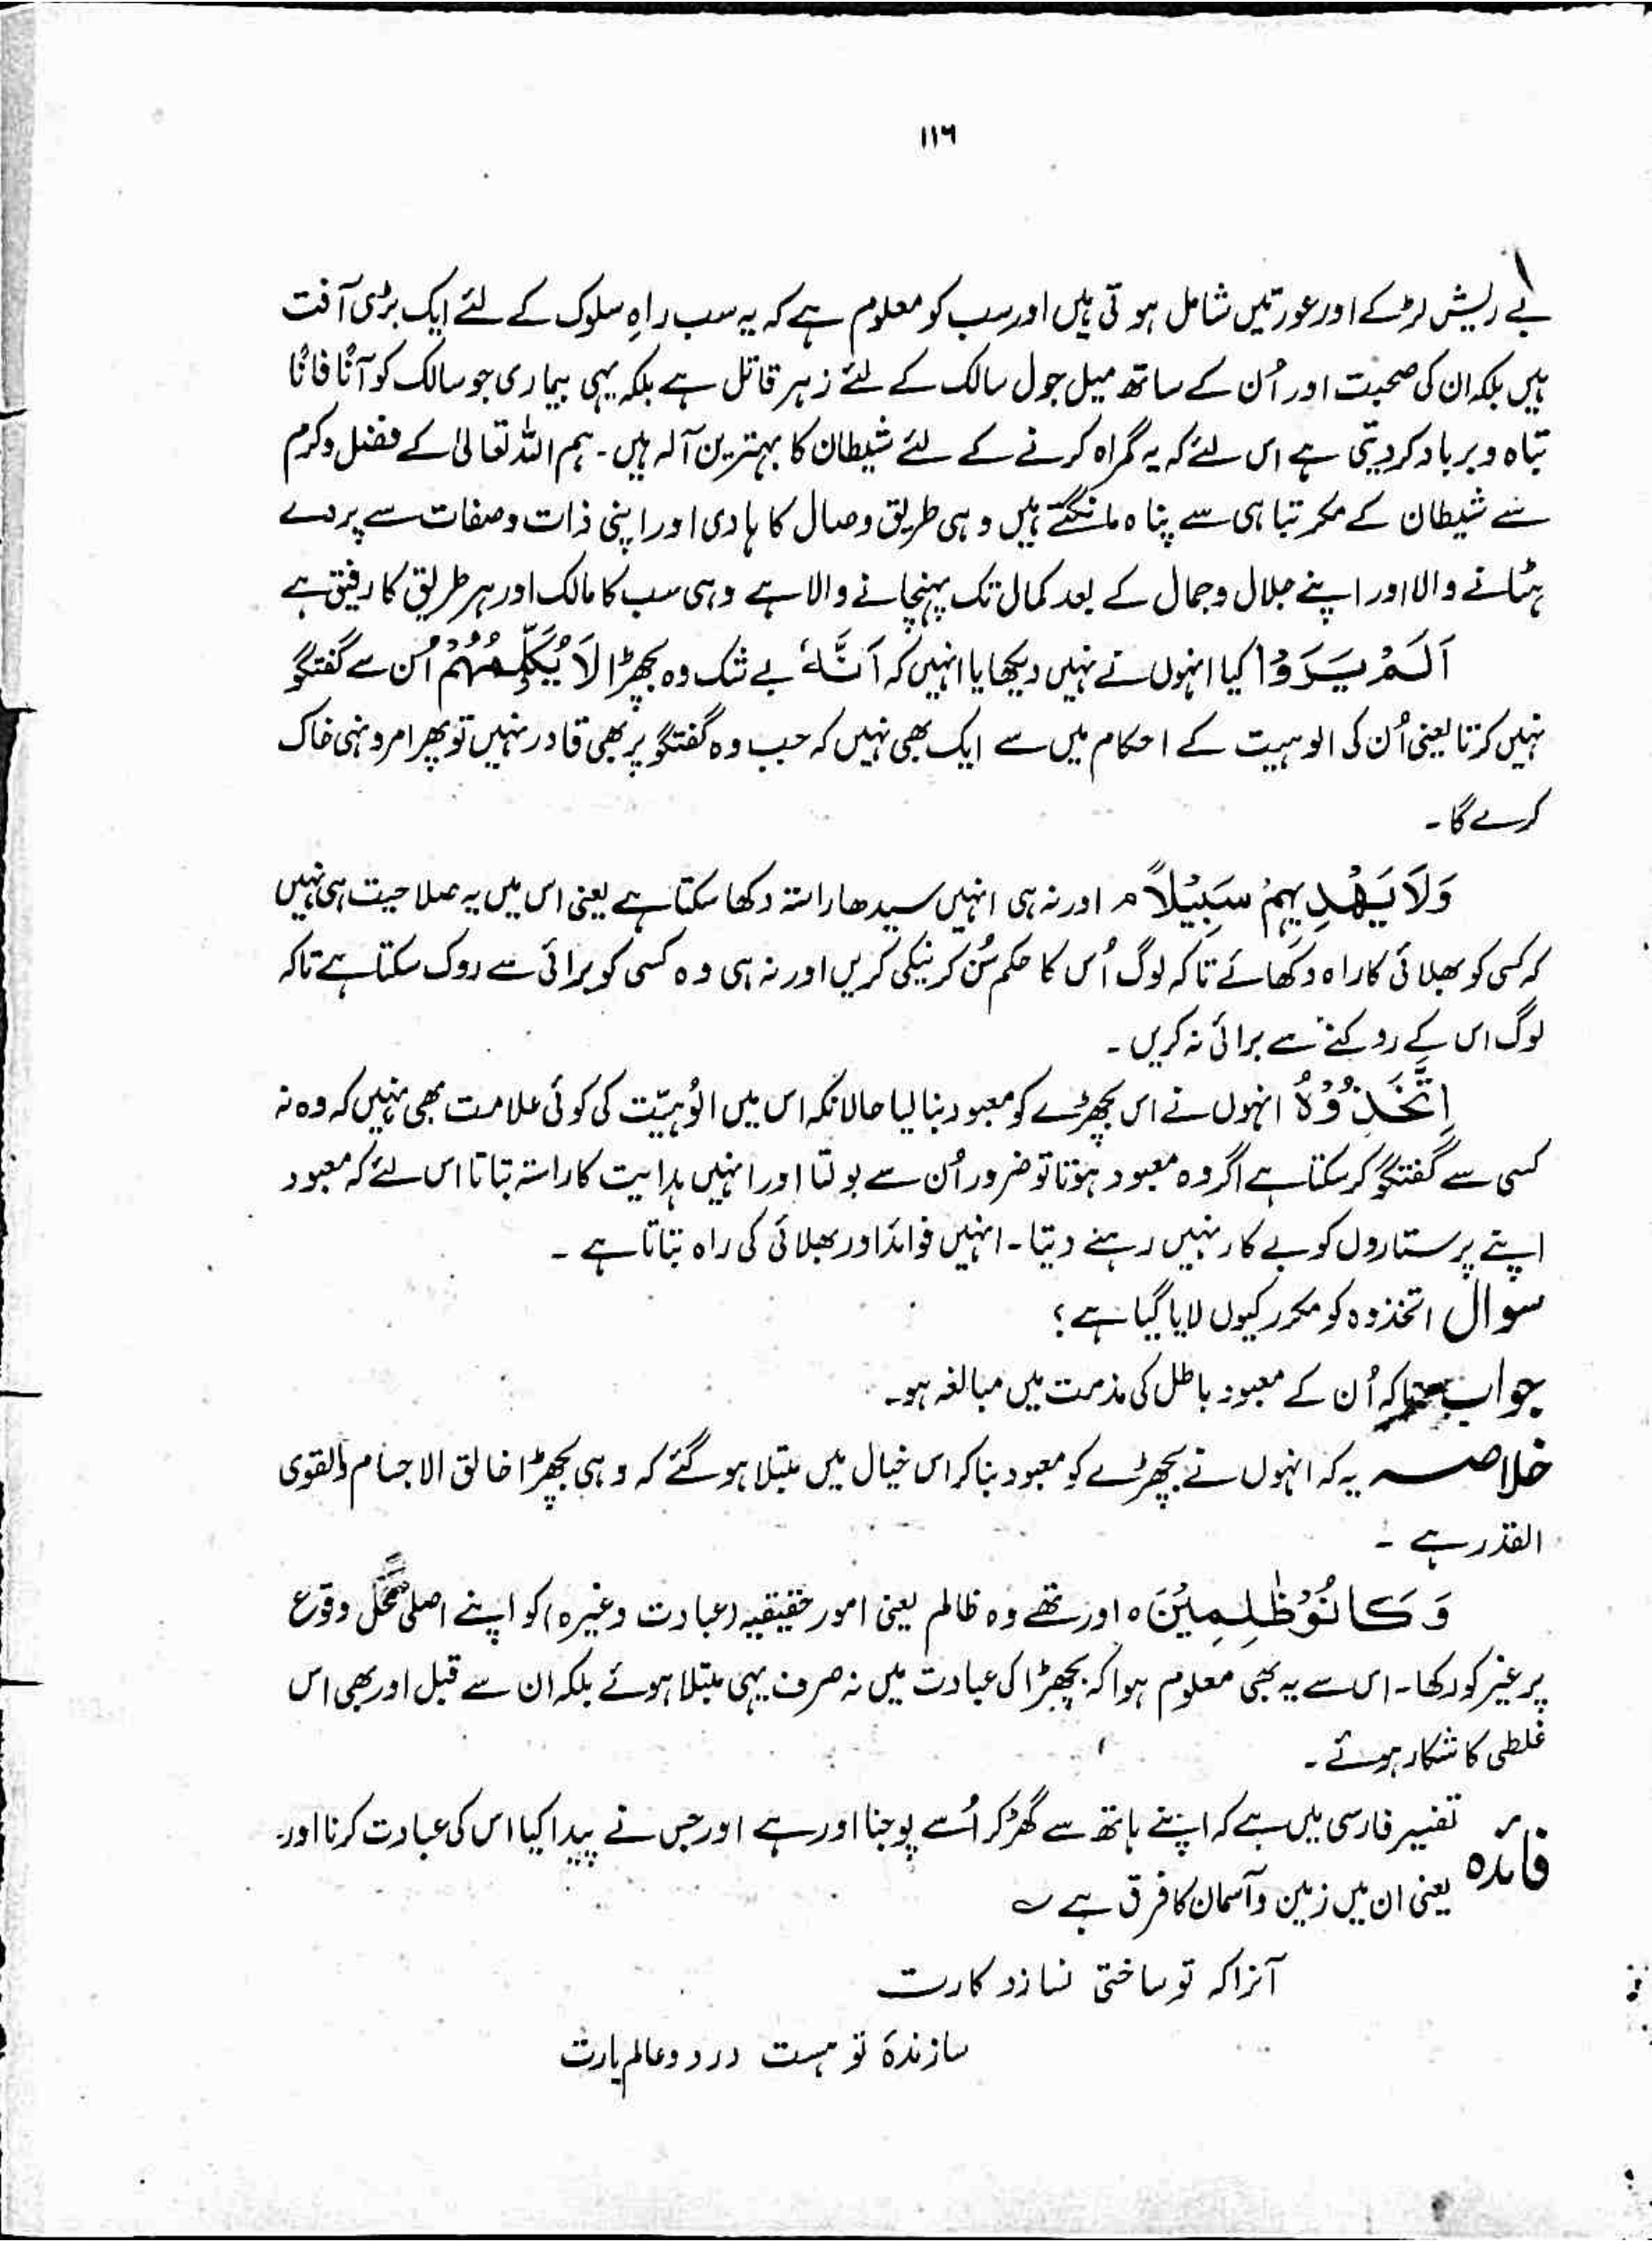 ۱۱۶
بے ریش لڑکے اور عورتیں شامل ہوتی ہیں اور سب کو معلوم ہے کہ یہ سب راہِ سلوک کے لئے ایک بڑی آفت
ہیں بلکہ ان کی صحبت اور اُن کے ساتھ میل جول سالک کے لئے زہر قاتل ہے بلکہ یہی بیماری جو سالک کو آنًا فانًا
تباہ و برباد کردیتی ہے اس لئے کہ یہ گمراہ کرنے کے لئے شیطان کا بہترین آلہ ہیں۔ ہم اللہ تعالیٰ کے فضل وکرم
سے شیطان کے مکر تباہی سے پناہ مانگتے ہیں وہی طریق وصال کا ہادی اور اپنی ذات وصفات سے پردے
ہٹانے والا اور اپنے جلال وجمال کے بعد کمال تک پہنچانے والا ہے وہی سب کا مالک اور ہر طریق کا رفیق ہے
اَلَمْ یَرَوْا کیا انہوں نے نہیں دیکھا یا انہیں کہ اَنَّہٗ بے شک وہ بچھڑا لَا یُکَلِّمُہُمْ اُن سے گفتگو
نہیں کرتا یعنی اُن کی الوہیت کے احکام میں سے ایک بھی نہیں کہ جب وہ گفتگو پر بھی قادر نہیں تو پھر امرونہی خاک
کرے گا۔
وَلَا یَہْدِیْہِمْ سَبِیْلًا م اور نہ ہی انہیں سیدھا راستہ دکھا سکتا ہے یعنی اس میں یہ صلاحیت ہی نہیں
کہ کسی کو بھلائی کا راہ دکھائے تاکہ لوگ اُس کا حکم سُن کر نیکی کریں اور نہ ہی وہ کسی کو برائی سے روک سکتا ہے تاکہ
لوگ اس کے روکنے سے برائی نہ کریں۔
اِتَّخَذُوْہُ انہوں نے اس بچھڑے کو معبود بنا لیا حالانکہ اس میں الوُہیّت کی کوئی علامت بھی نہیں کہ وہ نہ
کسی سے گفتگو کرسکتا ہے اگر وہ معبود ہوتا تو ضرور اُن سے بولتا اور انہیں ہدایت کا راستہ بتاتا اس لئے کہ معبود
اپنے پرستاروں کو بے کار نہیں رہنے دیتا۔ انہیں فوائد اور بھلائی کی راہ بتاتا ہے۔
سوال اتخذوہ کو مکرر کیوں لایا گیا ہے؟
جواب تاکہ اُن کے معبود باطل کی مذمت میں مبالغہ ہو۔
خلاصہ یہ کہ انہوں نے بچھڑے کو معبود بنا کر اس خیال میں مبتلا ہوگئے کہ وہی بچھڑا خالق الاجسام والقوی
القدر ہے۔
وَکَانُوْ ظٰلِمِیْنَ ہ اور تھے وہ ظالم یعنی امور حقیقیہ (عبادت وغیرہ) کو اپنے اصلی محل وقوع
پر غیر کو رکھا۔ اس سے یہ بھی معلوم ہوا کہ بچھڑا کی عبادت میں نہ صرف یہی مبتلا ہوئے بلکہ ان سے قبل اور بھی اس
غلطی کا شکار ہوئے۔
فائدہ تفسیر فارسی میں ہے کہ اپنے ہاتھ سے گھڑ کر اُسے پوجنا اور ہے اور جس نے پیدا کیا اس کی عبادت کرنا اور۔
یعنی ان میں زمین وآسمان کا فرق ہے ؎
آنراکہ تو ساختی نسازد کارت
سازندۂ تو ہست در دو عالم یارت